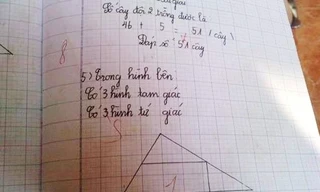 Số cây đội 2 trồng được là
46 + 5 = 51 ( cây )
Đáp số 51 cây
8
5) Trong hình bên
Có 3 hình tam giác
Có 3 hình tứ giác
1